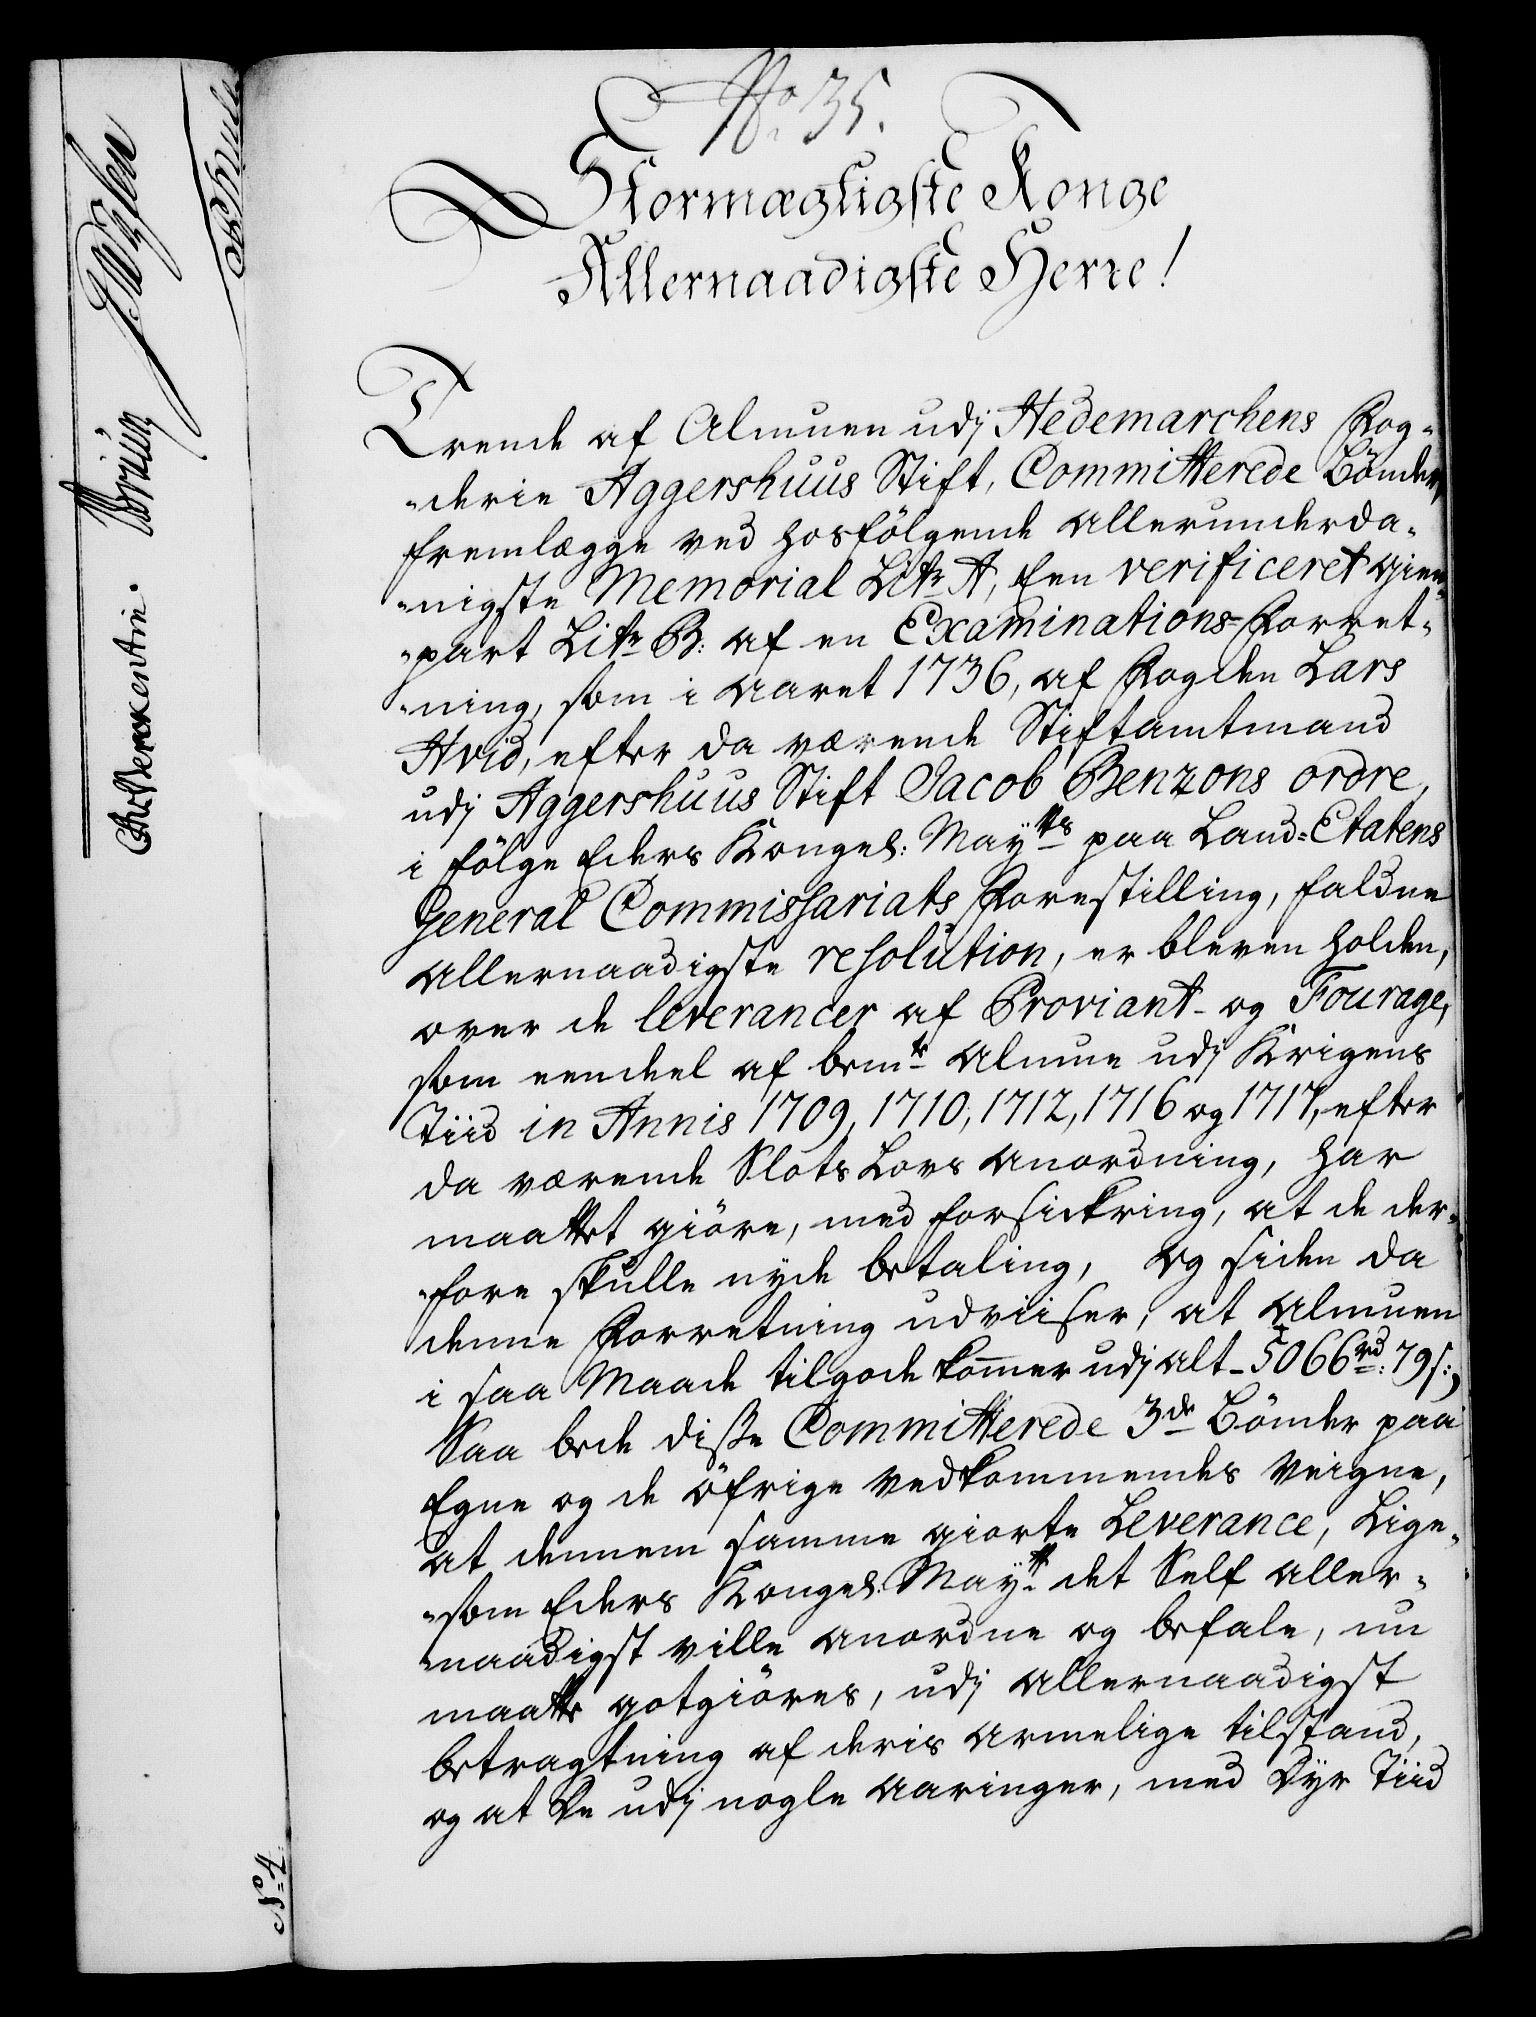 No 35.
Stormægtigste Konge
Allernaadigste Herre!
Trende af Almuen udj Hedemarchens Fog-
-derie Aggershuus Stift, Committerede Bönder,
fremlægge ved hosfölgende allerunderda-
-nigste Memorial Litr A, Een verificeret gien-
-part Litr B: af en Examinations-Forret-
-ning, som i Aaret 1736, af Fogden Lars
Hvid, efter da værende Stiftamtmand
udj Aggershuus Stift Jacob Benzons ordre,
i fölge Eders Kongel: Mayts paa Land-Etatens
General Commissariats Forestilling, faldne
allernaadigste resolution, er bleven holden,
over de leverancer af Proviant- og Fourage,
som eendeel af bemte Almue udj Krigens
Tiid in Annis 1709, 1710, 1712, 1716 og 1717, efter
da værende Slots Lovs Anordning, har
maattet giöre, med forsickring, at de der-
-fore skulle nyde betaling, og siden da
denne Forretning udviiser, at Almuen
i saa Maade tilgode kommer udj alt - 5066 rd: 79 s:,
Saa bede disse Committerede 3de Bönder paa
Egne og de öfrige vedkommendes Veigne,
at dennem samme giorte Leverance, Lige-
-som Eders Kongel: Mayt det Self aller-
-naadigst ville anordne og befale, nu
maatte gotgiöres, udj allernaadigst
betragtning af deris armelige tilstand,
og at De udj nogle Aaringer, med Dyr Tiid
No 4